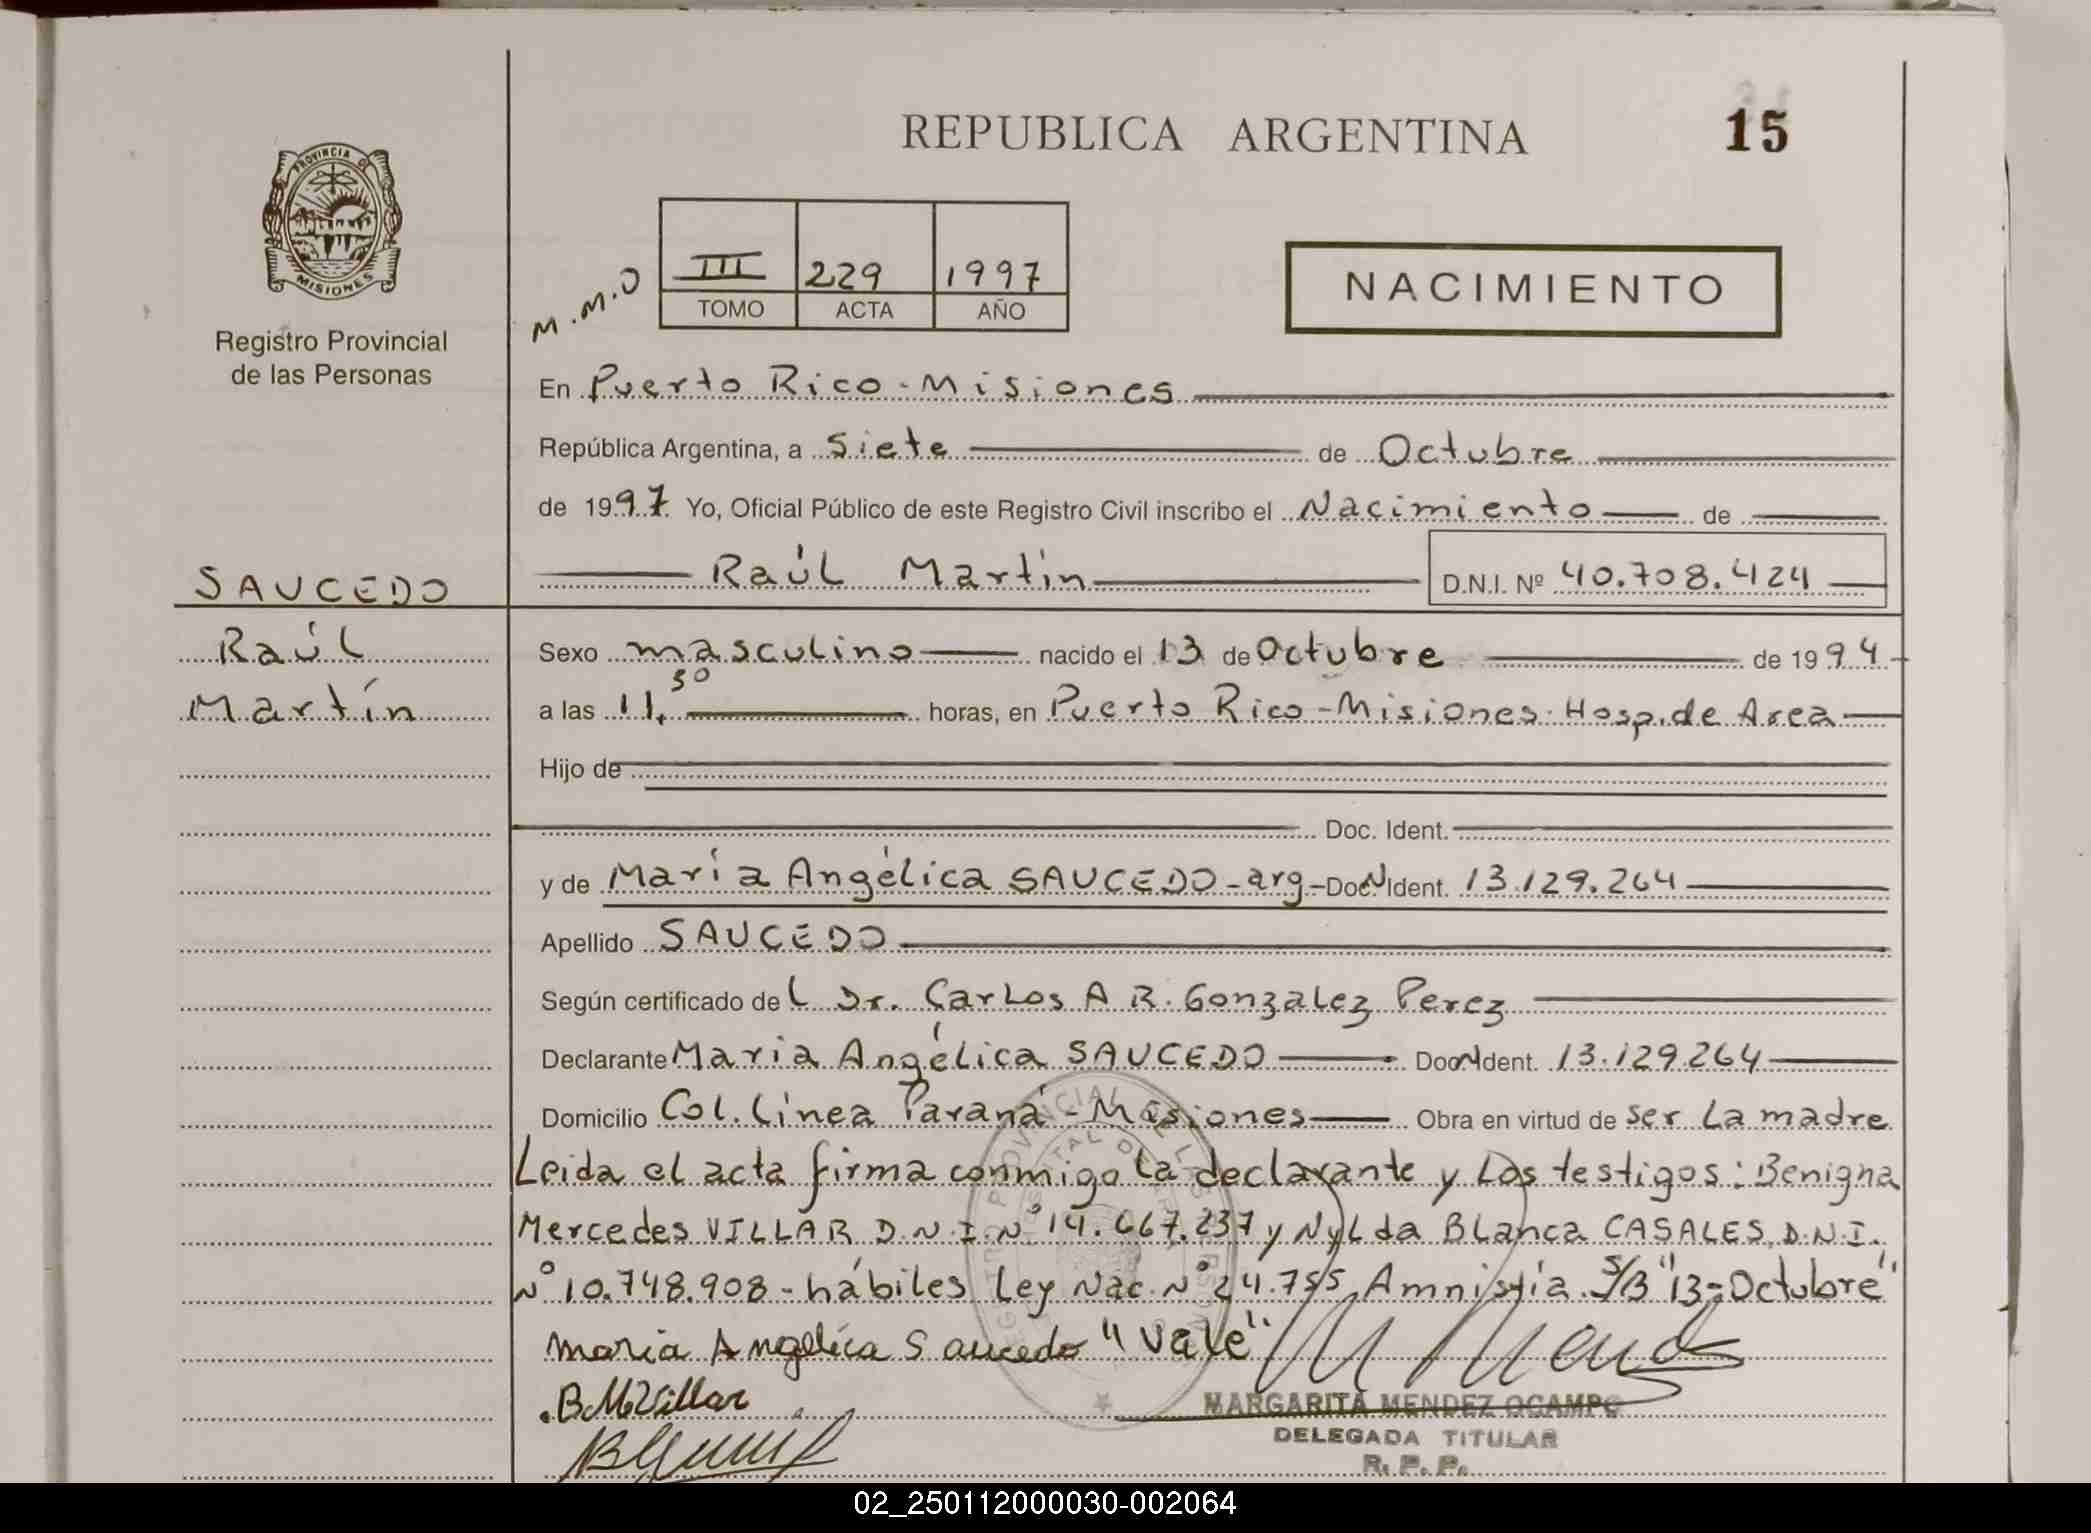 REPUBLICA ARGENTINA
15
PROVINCIA DE
MISIONES
Registro Provincial
de las Personas
M.M.O
III 229 1997
TOMO ACTA AÑO
NACIMIENTO
En Puerto Rico - Misiones
República Argentina, a Siete de Octubre
de 1997 Yo, Oficial Público de este Registro Civil inscribo el Nacimiento de
Raúl Martín D.N.I. Nº 40.708.424
SAUCEDO
Raúl
Martín
Sexo masculino nacido el 13 de Octubre de 1994
a las 11,30 horas, en Puerto Rico - Misiones. Hosp. de Area
Hijo de
Doc. Ident.
y de María Angélica SAUCEDO - arg - Doc. Ident. 13.129.264
Apellido SAUCEDO
Según certificado del Dr. Carlos A R. Gonzalez Perez
Declarante Maria Angélica SAUCEDO Doc. Ident. 13.129.264
Domicilio Col. Línea Paraná - Misiones Obra en virtud de ser La madre
Leida el acta firma conmigo la declarante y Los testigos: Benigna
Mercedes VILLAR D.N.I. Nº 14.667.237 y Nylda Blanca CASALES, D.N.I.
Nº 10.748.908 - hábiles Ley Nac. Nº 24.755 Amnistía. S/B "13 = Octubre"
maria Angelica Saucedo "Vale"
B.M.Villar
MARGARITA MENDEZ OCAMPO
DELEGADA TITULAR
R. P. P.
02_250112000030-002064